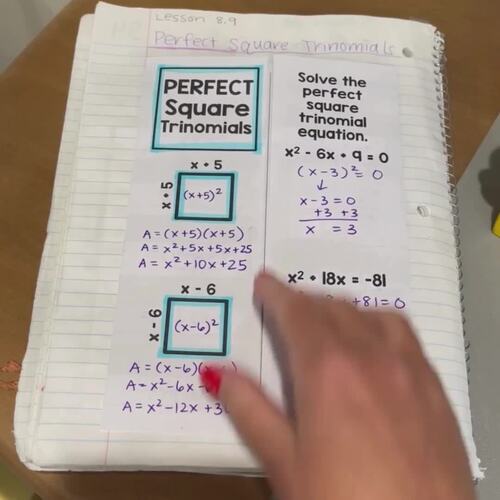 Lesson 8.9
Perfect Square Trinomials
PERFECT
Square
Trinomials
x + 5
x + 5
(x+5)²
A = (x+5)(x+5)
A = x²+5x+5x+25
A = x²+10x+25
x - 6
x - 6
(x-6)²
A = (x-6)(
A = x²-6x-
A = x²-12x+3
Solve the
perfect
square
trinomial
equation.
x² - 6x + 9 = 0
(x-3)² = 0
↓
x-3 = 0
+3 +3
x = 3
x² + 18x = -81
+81=0